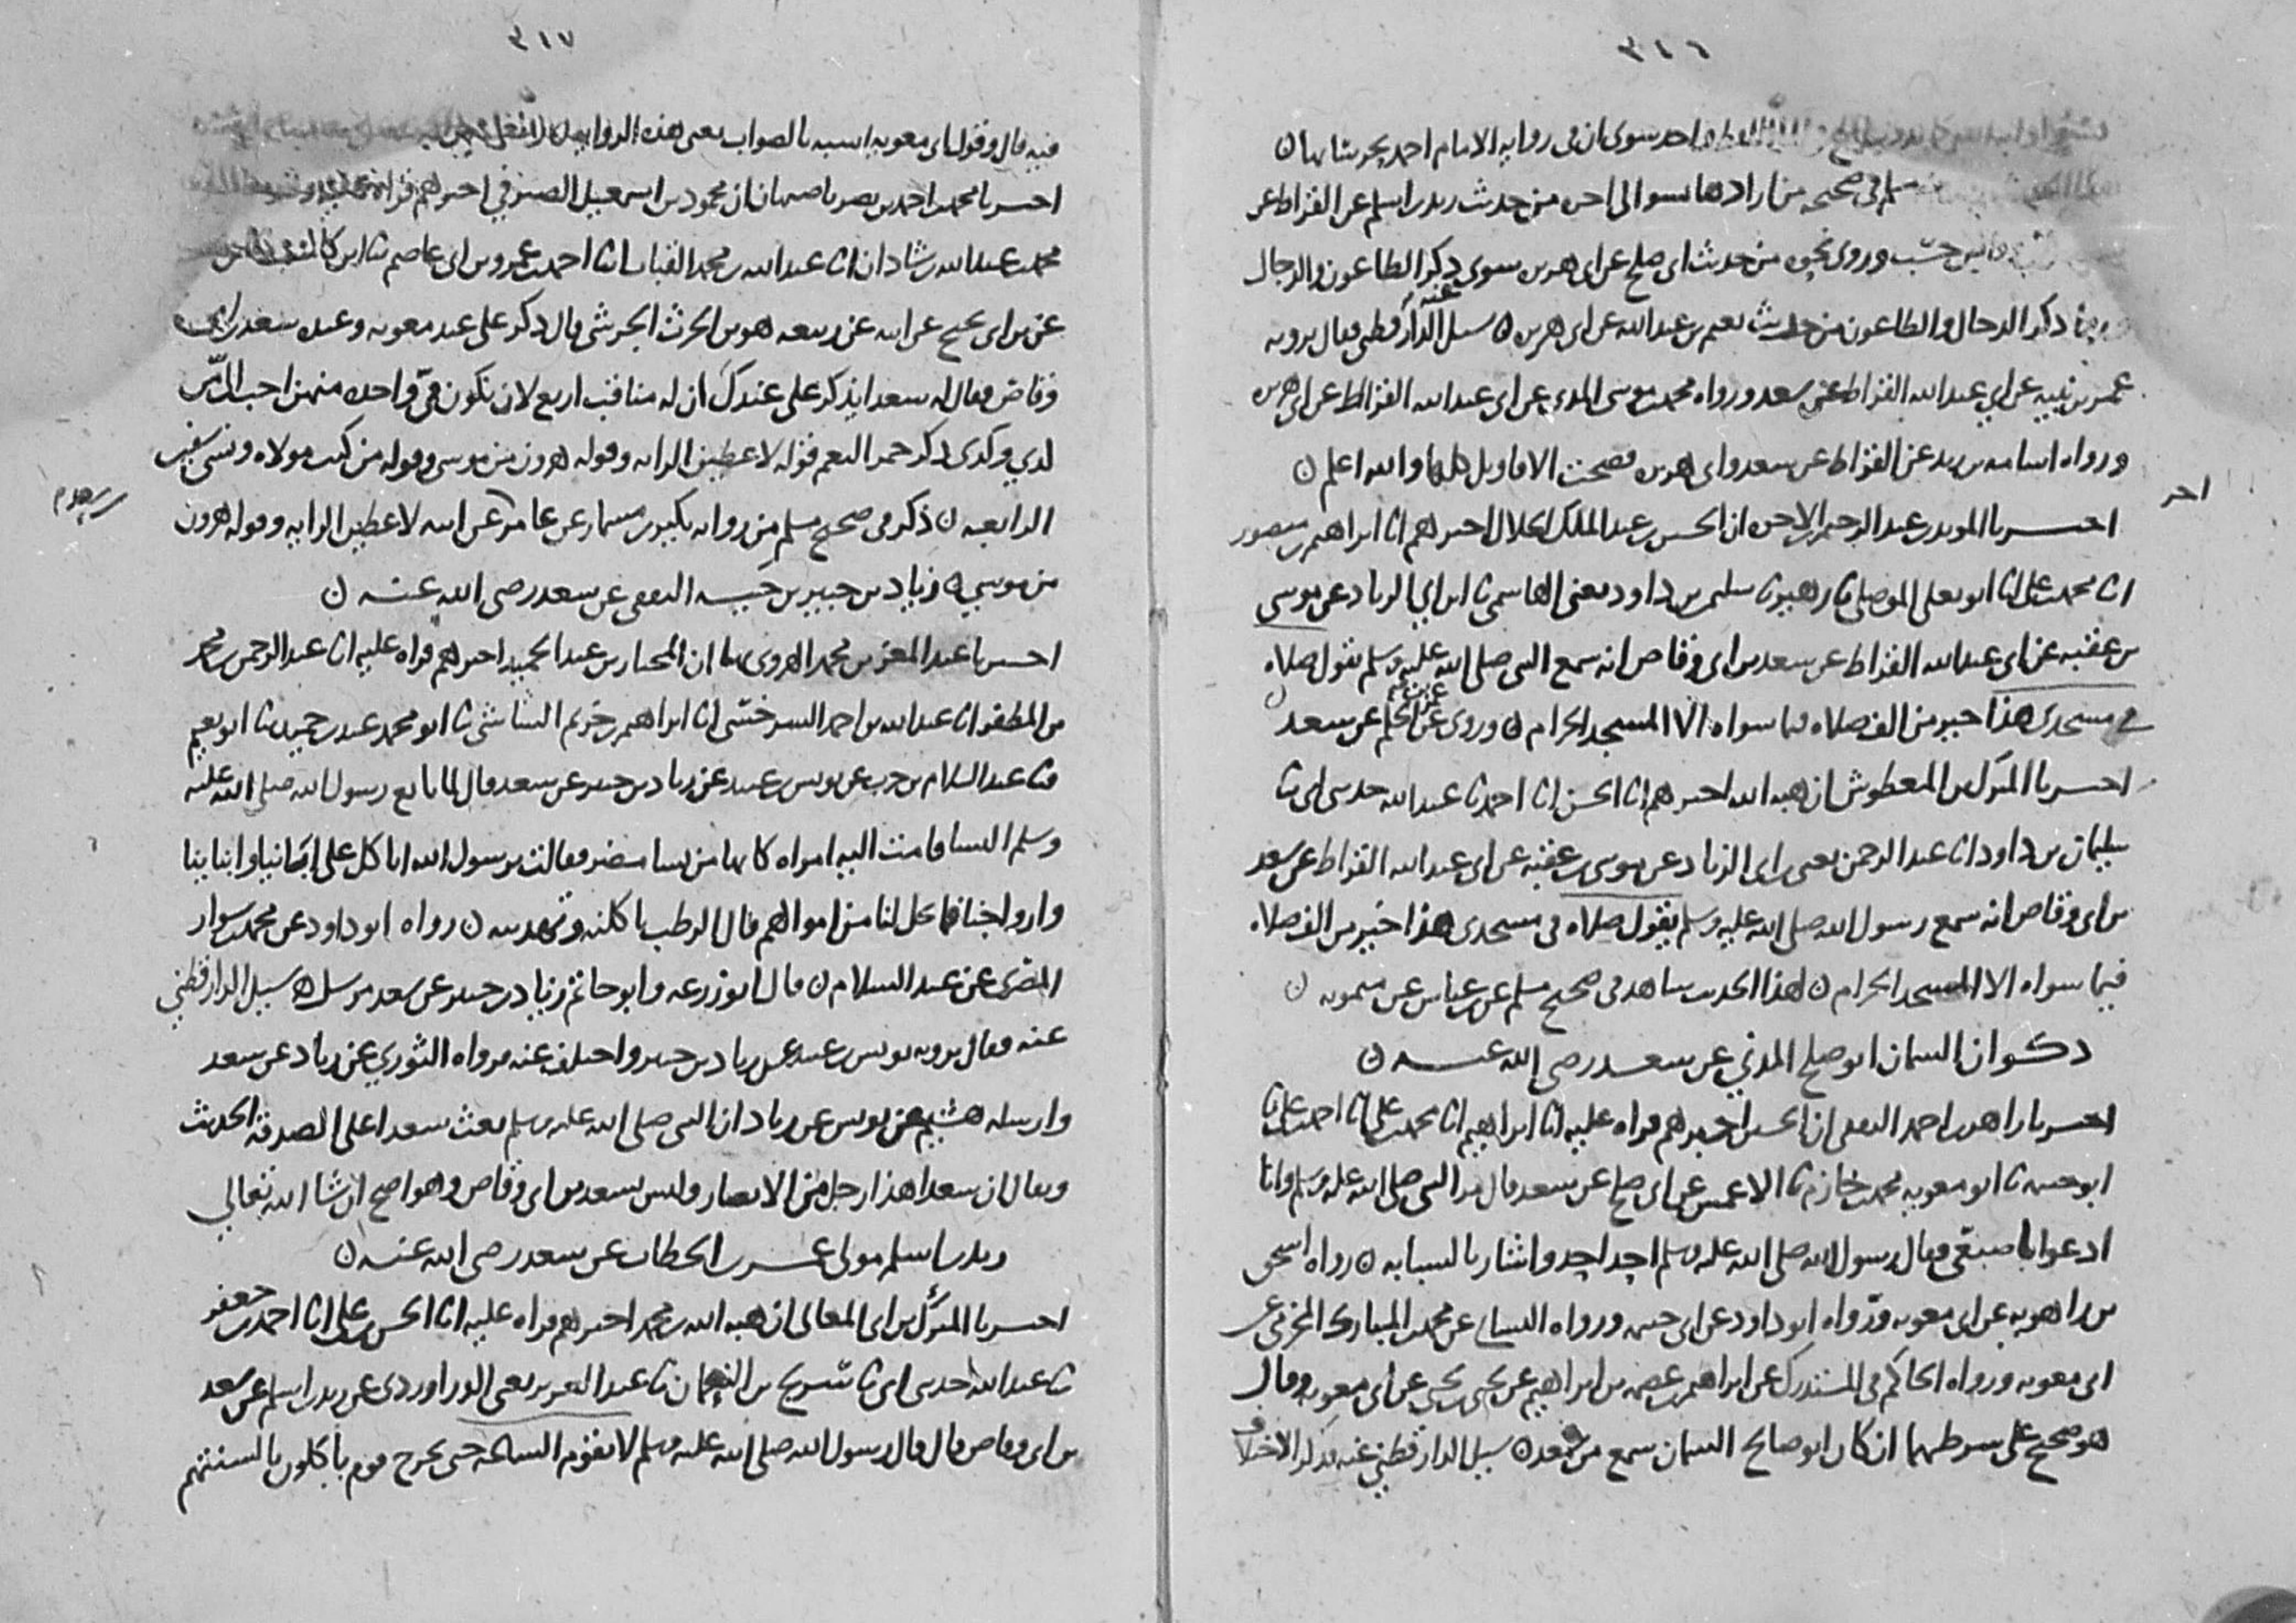 ٣١٦
احمد سوى ان فى رواية الامام احمد يحرسانها ن
مسلم فى صحيحه من ارادها بسوء الى اخره من حديث زيد بن اسلم عن القراظ عن
وروى نحوه من حديث ابى صلح عن ابى هريره سوى ذكر الطاعون والدجال
ذكر الدجال والطاعون من حديث نعيم بن عبد الله عن ابى هريره ن سيل الدارقطنى عنه فقال يرويه
عمر بن نبيه عن ابي عبد الله القراظ عن سعد ورواه محمد بن موسى المدنى عن ابى عبد الله القراظ عن ابى هريره
ورواه اسامه بن زيد عن القراظ عن سعد وابى هريره فصحت الاقاويل كلها والله اعلم ن
اخر
اخبرنا المويد بن عبد الرحيم بن الاخوه ان الحسين بن عبد الملك الخلال اخبرهم انا ابراهيم بن منصور
انا محمد بن على انا ابو يعلى الموصلى ثنا زهير ثنا سليمن بن داود يعنى الهاشمى ثنا ابن ابي الزناد عن موسى
بن عقبه عن ابى عبد الله القراظ عن سعد بن ابى وقاص انه سمع النبى صلى الله عليه وسلم يقول صلاه
فى مسجدى هذا خير من الف صلاه فيما سواه الا المسجد الحرام ن وروى عن الحكم عن سعد
اخبرنا المبارك بن المعطوش ان هبه الله اخبرهم انا الحسن انا احمد ثنا عبد الله حدثنى ابى ثنا
سليمان بن داود انا عبد الرحمن يعنى بن ابى الزناد عن موسى بن عقبه عن ابى عبد الله القراظ عن سعد
بن ابى وقاص انه سمع رسول الله صلى الله عليه وسلم يقول صلاه فى مسجدى هذا خير من الف صلاه
فيما سواه الا المسجد الحرام ن لهذا الحديث شاهد فى صحيح مسلم عن بن عباس عن ميمونه ن
ذكوان السمان ابو صلح المدني عن سعد رضى الله عنه ن
اخبرنا زاهر بن احمد الثقفى ان الحسين اخبرهم قراه عليه انا ابراهيم انا محمد بن على انا احمد بن على ثنا
ابو خيثمه ثنا ابو معويه محمد بن خازم ثنا الاعمش عن ابى صلح عن سعد قال مر النبى صلى الله عليه وسلم وانا
ادعوا باصبعى فقال رسول الله صلى الله عليه وسلم احد احد واشار بالسبابه ن رواه اسحق
بن راهويه عن ابى معويه ورواه ابو داود عن ابى خيثمه ورواه النساى عن محمد بن المبارك المخرمى عن
ابى معويه ورواه الحاكم فى المستدرك عن ابراهيم بن عصمه بن ابراهيم عن يحيى بن يحيى عن ابى معويه وقال
هو صحيح على شرطهما ان كان ابو صالح السمان سمع من سعد ن سيل الدارقطنى عنه فذكر الاختلاف
٣١٧
فيه قال وقول ابى معويه اشبه بالصواب يعنى هذه الروايه
اخبرنا محمد بن احمد بن نصر باصبهان ان محمود بن اسمعيل الصيرفي اخبرهم قراه عليه
محمد بن عبد الله بن شاذان انا عبد الله بن محمد القباب انا احمد بن عمرو بن ابى عاصم ثنا ابن كاسب
عن بن ابى نجيح عن ابيه عن ربيعه هو بن الحرث الجرشى قال ذكر على عند معويه وعنده سعد بن ابى
وقاص فقال له سعد ايذكر على عندك ان له مناقب اربع لان تكون فى واحده منهن احب الى من
كذي وكذى ذكر حمر النعم قوله لاعطين الرايه وقوله هرون من موسى وقوله من كنت مولاه ونسى سفين
الرابعه ن ذكر فى صحيح مسلم من روايه بكير بن مسمار عن عامر عن ابيه لاعطين الرايه وقوله هرون
من موسي ن زياد بن جبير بن حيه الثقفى عن سعد رضى الله عنه ن
اخبرنا عبد المعز بن محمد الهروى بها ان المختار بن عبد الحميد اخبرهم قراه عليه انا عبد الرحمن بن محمد
بن المظفر انا عبد الله بن احمد السرخسى انا ابراهيم بن خزيم الشاشى ثنا ابو محمد عبد بن حميد ثنا ابو نعيم
ثنا عبد السلام بن حرب عن يونس بن عبيد عن زياد بن جبير عن سعد قال لما بايع رسول الله صلى الله عليه
وسلم النسا قامت اليه امراه كانها من نسا مضر فقالت يرسول الله انا كل على ابائنا وابنائنا
وازواجنا فما يحل لنا من اموالهم قال الرطب تاكلنه وتهدينه ن رواه ابو داود عن محمد بن سوار
المصرى عن عبد السلام ن قال ابو زرعه وابو حاتم زياد بن جبير عن سعد مرسل ن سيل الدارقطني
عنه فقال يرويه يونس بن عبيد عن زياد بن جبير واختلف عنه فرواه الثوري عن زياد عن سعد
وارسله هشيم عن يونس عن زياد ان النبى صلى الله عليه وسلم بعث سعدا على الصدقه الحديث
ويقال ان سعدا هذا رجل من الانصار وليس بسعد بن ابى وقاص وهو اصح ان شا الله تعالي
زيد بن اسلم مولى عمر بن الخطاب عن سعد رضى الله عنه ن
اخبرنا المبارك بن ابى المعالى ان هبه الله بن محمد اخبرهم قراه عليه انا الحسن بن على انا احمد بن جعفر
ثنا عبد الله حدثنى ابى ثنا سريج بن النعمان ثنا عبد العزيز يعنى الدراوردى عن زيد بن اسلم عن سعد
بن ابى وقاص قال قال رسول الله صلى الله عليه وسلم لا تقوم الساعه حتى يخرج قوم ياكلون بالسنتهم